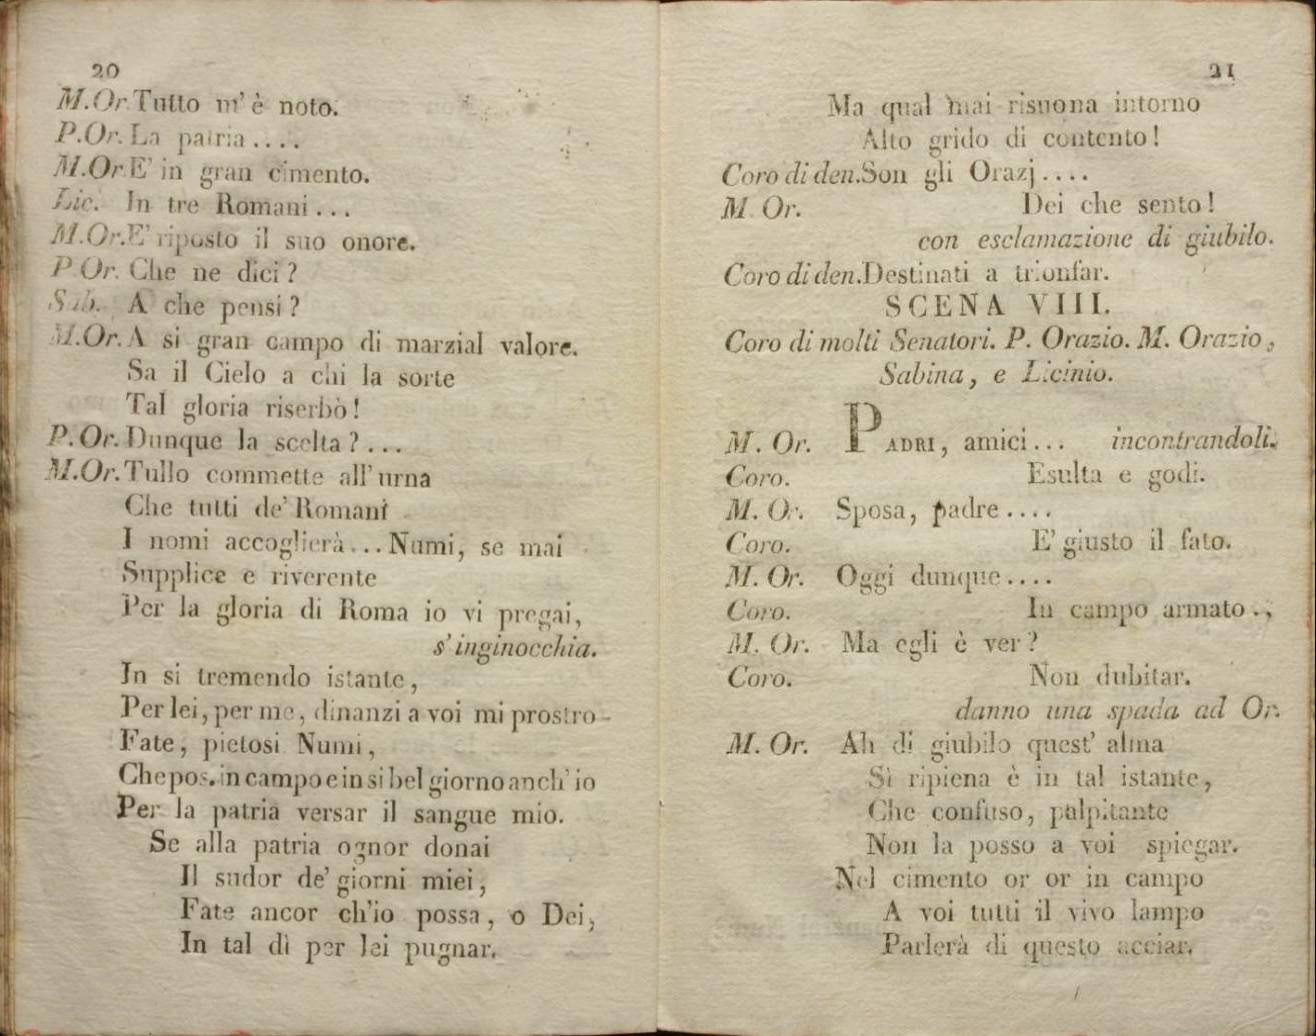 20
M.Or. Tutto m' è noto.
P.Or. La patria....
M.Or E' in gran cimento.
Lic. In tre Romani...
M.Or. E' riposto il suo onore.
P Or. Che ne dici?
Sab. A che pensi?
M.Or. A si gran campo di marzial valore.
Sa il Cielo a chi la sorte
Tal gloria riserbò!
P.Or. Dunque la scelta?...
M.Or. Tullo commette all'urna
Che tutti de' Romani
I nomi accoglierà...Numi, se mai
Supplice e riverente
Per la gloria di Roma io vi pregai,
s' inginocchia.
In si tremendo istante,
Per lei, per me, dinanzi a voi mi prostro-
Fate, pietosi Numi,
Che pos. in campo e in si bel giorno anch' io
Per la patria versar il sangue mio.
Se alla patria ognor donai
Il sudor de' giorni miei,
Fate ancor ch'io possa, o Dei,
In tal dì per lei pugnar.
21
Ma qual mai risuona intorno
Alto grido di contento!
Coro di den. Son gli Orazj....
M. Or. Dei che sento!
con esclamazione di giubilo.
Coro di den. Destinati a trionfar.
SCENA VIII.
Coro di molti Senatori. P. Orazio. M. Orazio,
Sabina, e Licinio.
M. Or. PADRI, amici... incontrandoli.
Coro. Esulta e godi.
M. Or. Sposa, padre....
Coro. E' giusto il fato.
M. Or. Oggi dunque....
Coro. In campo armato..
M. Or. Ma egli è ver?
Coro. Non dubitar.
danno una spada ad Or.
M. Or. Ah di giubilo quest' alma
Sì ripiena è in tal istante,
Che confuso, palpitante
Non la posso a voi spiegar.
Nel cimento or or in campo
A voi tutti il vivo lampo
Parlerà di questo acciar.